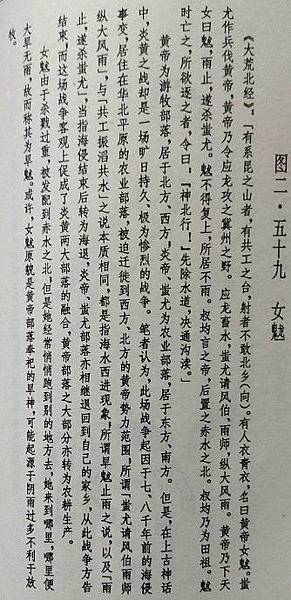 图二·五十九 女魃
《大荒北经》：“有系昆之山者，有共工之台，射者不敢北乡〈向〉。有人衣青衣，名曰黄帝女魃。蚩
尤作兵伐黄帝，黄帝乃令应龙攻之冀州之野。应龙畜水，蚩尤请风伯、雨师，纵大风雨。黄帝乃下天
女曰魃，雨止，遂杀蚩尤。魃不得复上，所居不雨。叔均言之帝，后置之赤水之北。叔均乃为田祖。魃
时亡之，所欲逐之者，令曰：‘神北行！’先除水道，决通沟渎。”
黄帝为游牧部落，居于北方、西方，炎帝、蚩尤为农业部落，居于东方、南方。但是，在上古神话
中，炎黄之战却是一场旷日持久、极为惨烈的战争。笔者认为，此场战争起因于七、八千年前的海侵
事变，居住在华北平原的农业部落，被迫迁徙到西方、北方的黄帝势力范围，所谓“蚩尤请风伯雨师
纵大风雨”，与“共工振滔洪水”之说本质相同，都是指海水西进现象，所谓旱魃止雨之说，以及“雨
止，遂杀蚩尤”，当指海侵结束后转为海退，炎帝、蚩尤部落亦相继退回到自己的家乡，从此战争方告
结束，而这场战争客观上促成了炎黄两大部落的融合，黄帝部落之大部分亦转为农耕生产。
女魃由于杀戮过重，被发配到赤水之北，但是她经常悄悄跑到别的地方去，她来到哪里，哪里便
大旱无雨，故而称其为旱魃。或许，女魃原貌是黄帝部落奉祀的旱神，可能起源于阴雨过多不利于放
牧。